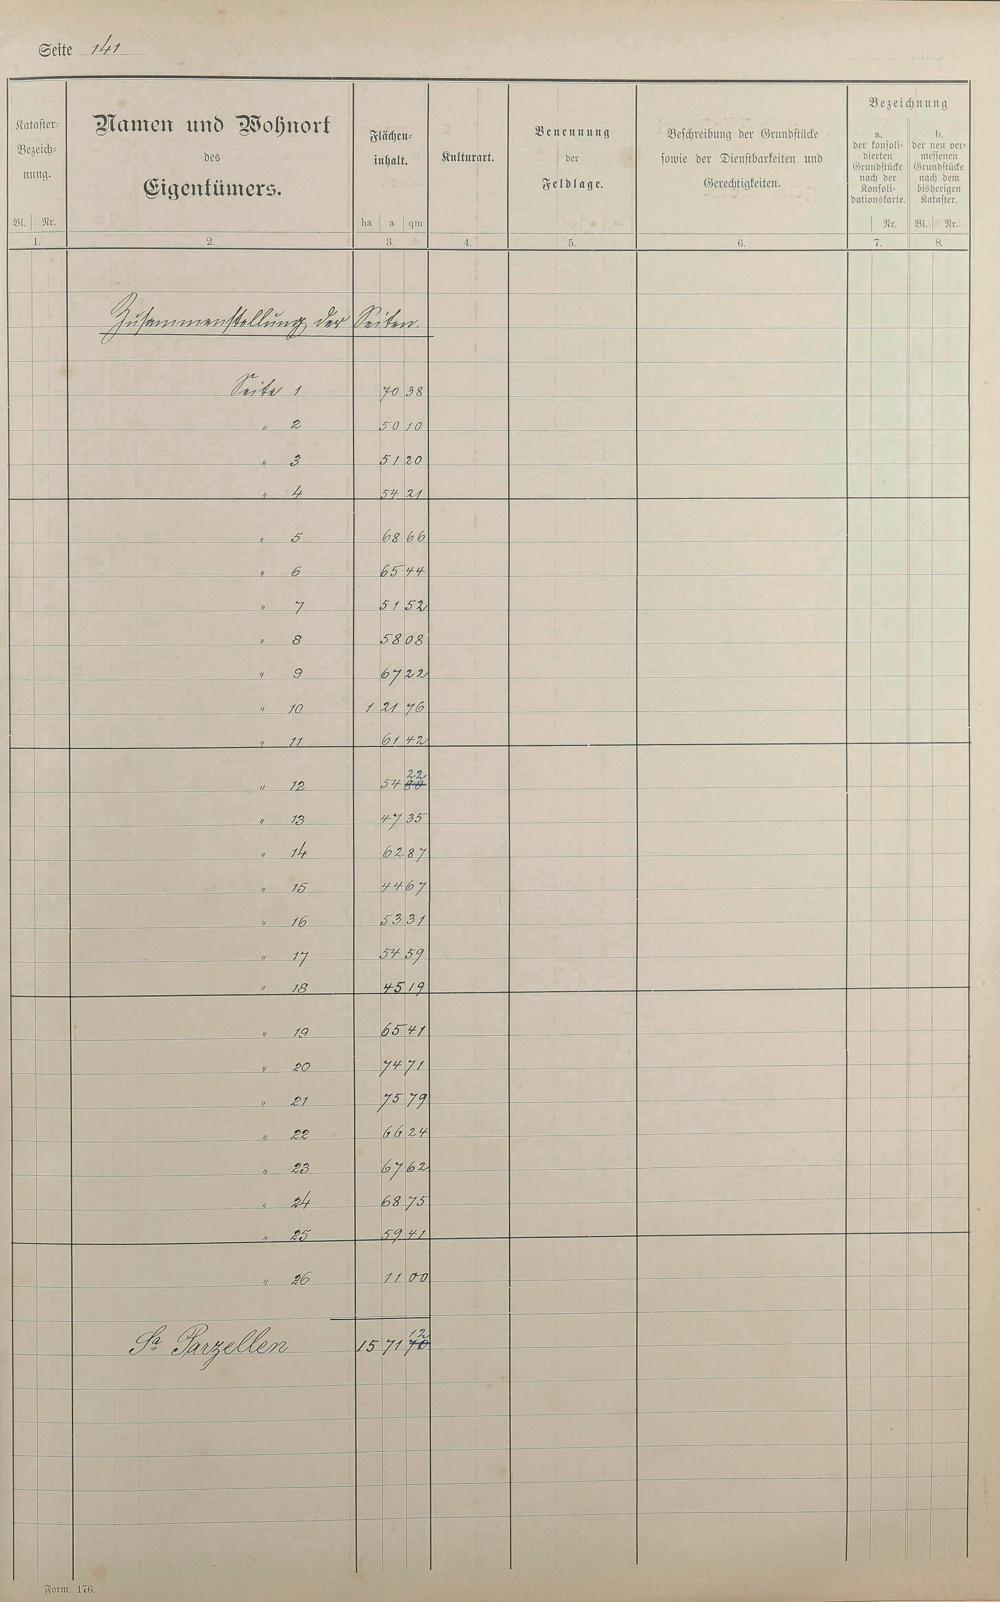 Seite 141
Kataster-
Bezeich-
nung.
Bl. Nr.
1.
Namen und Wohnort
des
Eigentümers.
2.
Flächen-
inhalt.
ha a qm
3.
Kulturart.
4.
Benennung
der
Feldlage.
5.
Beschreibung der Grundstücke
sowie der Dienstbarkeiten und
Gerechtigkeiten.
6.
Bezeichnung
a.
der konsoli-
dierten
Grundstücke
nach der
Konsoli-
dationskarte.
Nr.
7.
b.
der neu ver-
messenen
Grundstücke
nach dem
bisherigen
Kataster.
Bl. Nr.
8.
Zusammenstellung der Seiten.
Seite 1 70 38
" 2 50 10
" 3 51 20
" 4 54 21
" 5 68 66
" 6 65 44
" 7 51 52
" 8 58 08
" 9 67 22
" 10 1 21 76
" 11 61 42
22
" 12 54 80
" 13 47 35
" 14 62 87
" 15 44 67
" 16 53 31
" 17 54 59
" 18 45 19
" 19 65 41
" 20 74 71
" 21 75 79
" 22 66 24
" 23 67 62
" 24 68 75
" 25 59 41
" 26 11 00
12
Sa Parzellen 15 71 70
Form. 176.